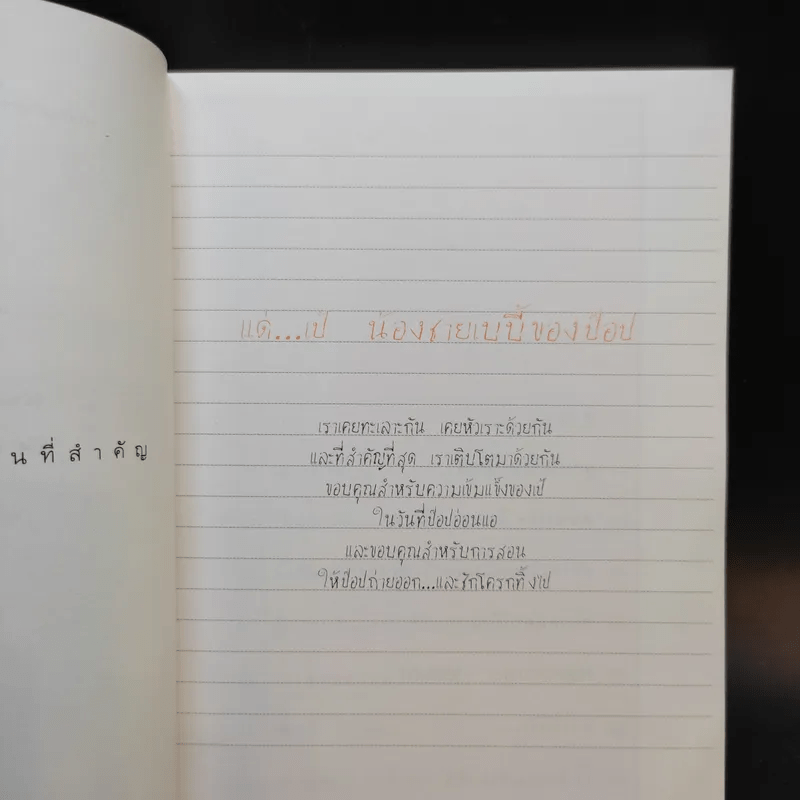 นที่สำคัญ
แด่...เป้ น้องชายเบบี้ของป๊อป
เราเคยทะเลาะกัน เคยหัวเราะด้วยกัน
และที่สำคัญที่สุด เราเติบโตมาด้วยกัน
ขอบคุณสำหรับความเข้มแข็งของเป้
ในวันที่ป๊อปอ่อนแอ
และขอบคุณสำหรับการสอน
ให้ป๊อปถ่ายออก...และชักโครกทิ้งไป